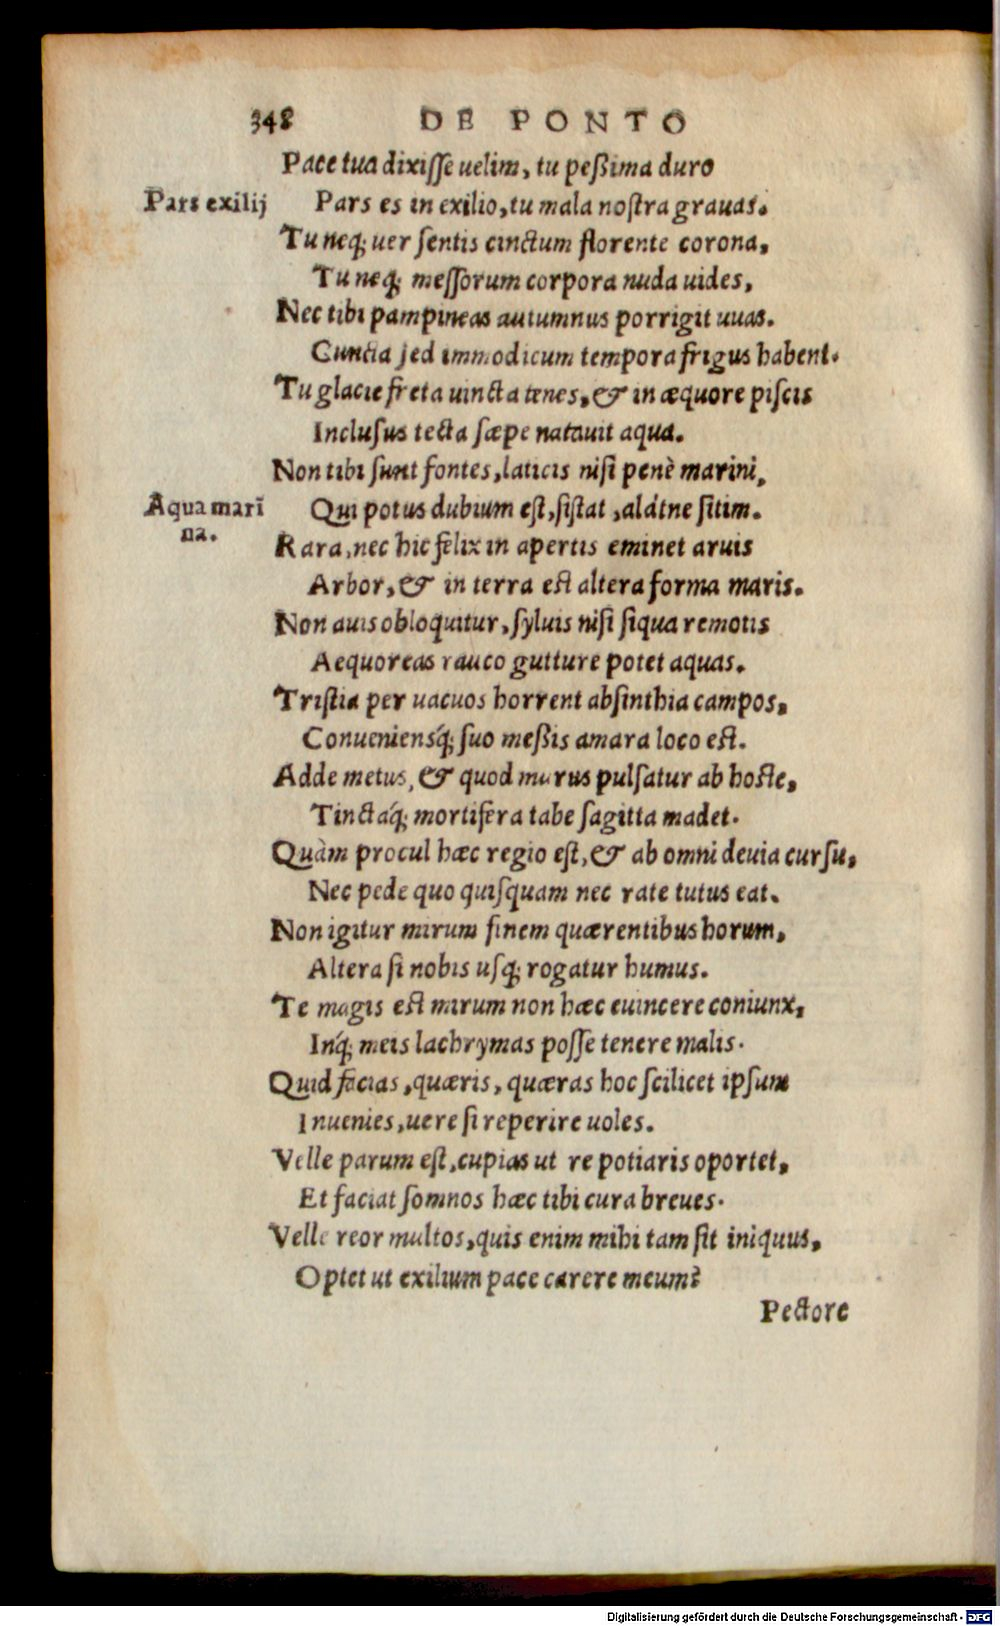 348 DE PONTO
Pace tua dixiſſe uelim, tu peßima duro
Pars exilij
Pars es in exilio, tu mala noſtra grauas.
Tu neq; uer ſentis cinctum florente corona,
Tu neq; meſſorum corpora nuda uides,
Nec tibi pampineas autumnus porrigit uuas.
Cuncta ſed immodicum tempora frigus habent.
Tu glacie freta uincta tenes, & in æquore piſcis
Incluſus tecta ſæpe natauit aqua.
Non tibi ſunt fontes, laticis niſi penè marini,
Aqua marī
na.
Qui potus dubium eſt, ſiſtat, alátne ſitim.
Rara, nec hic felix in apertis eminet aruis
Arbor, & in terra est altera forma maris.
Non auis obloquitur, ſyluis niſi ſiqua remotis
Aequoreas rauco gutture potet aquas.
Triſtia per uacuos horrent abſinthia campos,
Conueniensq́; ſuo meßis amara loco est.
Adde metus, & quod murus pulſatur ab hoste,
Tinctaq́; mortifera tabe ſagitta madet.
Quàm procul hæc regio eſt, & ab omni deuia curſu,
Nec pede quo quiſquam nec rate tutus eat.
Non igitur mirum finem quærentibus horum,
Altera ſi nobis uſq; rogatur humus.
Te magis est mirum non hæc euincere coniunx,
Inq́; meis lachrymas poſſe tenere malis.
Quid facias, quæris, quæras hoc ſcilicet ipſum
Inuenies, uere ſi reperire uoles.
Velle parum eſt, cupias ut re potiaris oportet,
Et faciat ſomnos hæc tibi cura breues.
Velle reor multos, quis enim mihi tam ſit iniquus,
Optet ut exilium pace carere meum?
Pectore
Digitalisierung gefördert durch die Deutsche Forschungsgemeinschaft - DFG